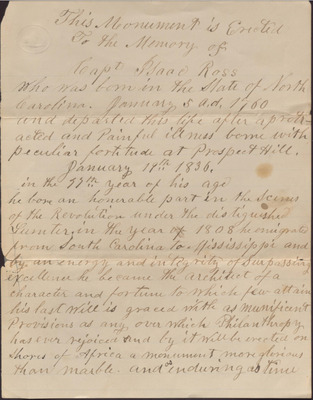 This Monument is Erected
To the Memory
of
Capt Isaac Ross
Who was born in the State of North
Carolina. January 5 A.d, 1760
and departed this life after a protr-
acted and Painful illness borne with
peculiar fortitude at Prospect Hill.
January 19th 1836.
in the 77th year of his age
he bore an honorable part in the Scenes
of the Revolution under the distinguished
in the year of 1808 he migrates
from South Carolina to Mississippi and
by an energy and integrity of Surpassing
excellence he became the architect of a
character and fortune to which few attain
his last Will is graced with as munificent
Provisions as any over which Philanthropy
has ever rejoiced and by it will be erected on
Shores of Africa a monument more glorious
than marble and enduring as time